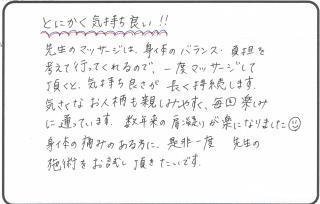 とにかく気持ち良い!!
先生のマッサージは、身体のバランス・負担を
考えて行ってくれるので、一度マッサージして
頂くと、気持ち良さが長く持続します。
気さくなお人柄も親しみやすく、毎回楽しみ
に通っています。数年来の肩凝りが楽になりました☺
身体の痛みのある方に、是非一度 先生の
施術をお試し頂きたいです。